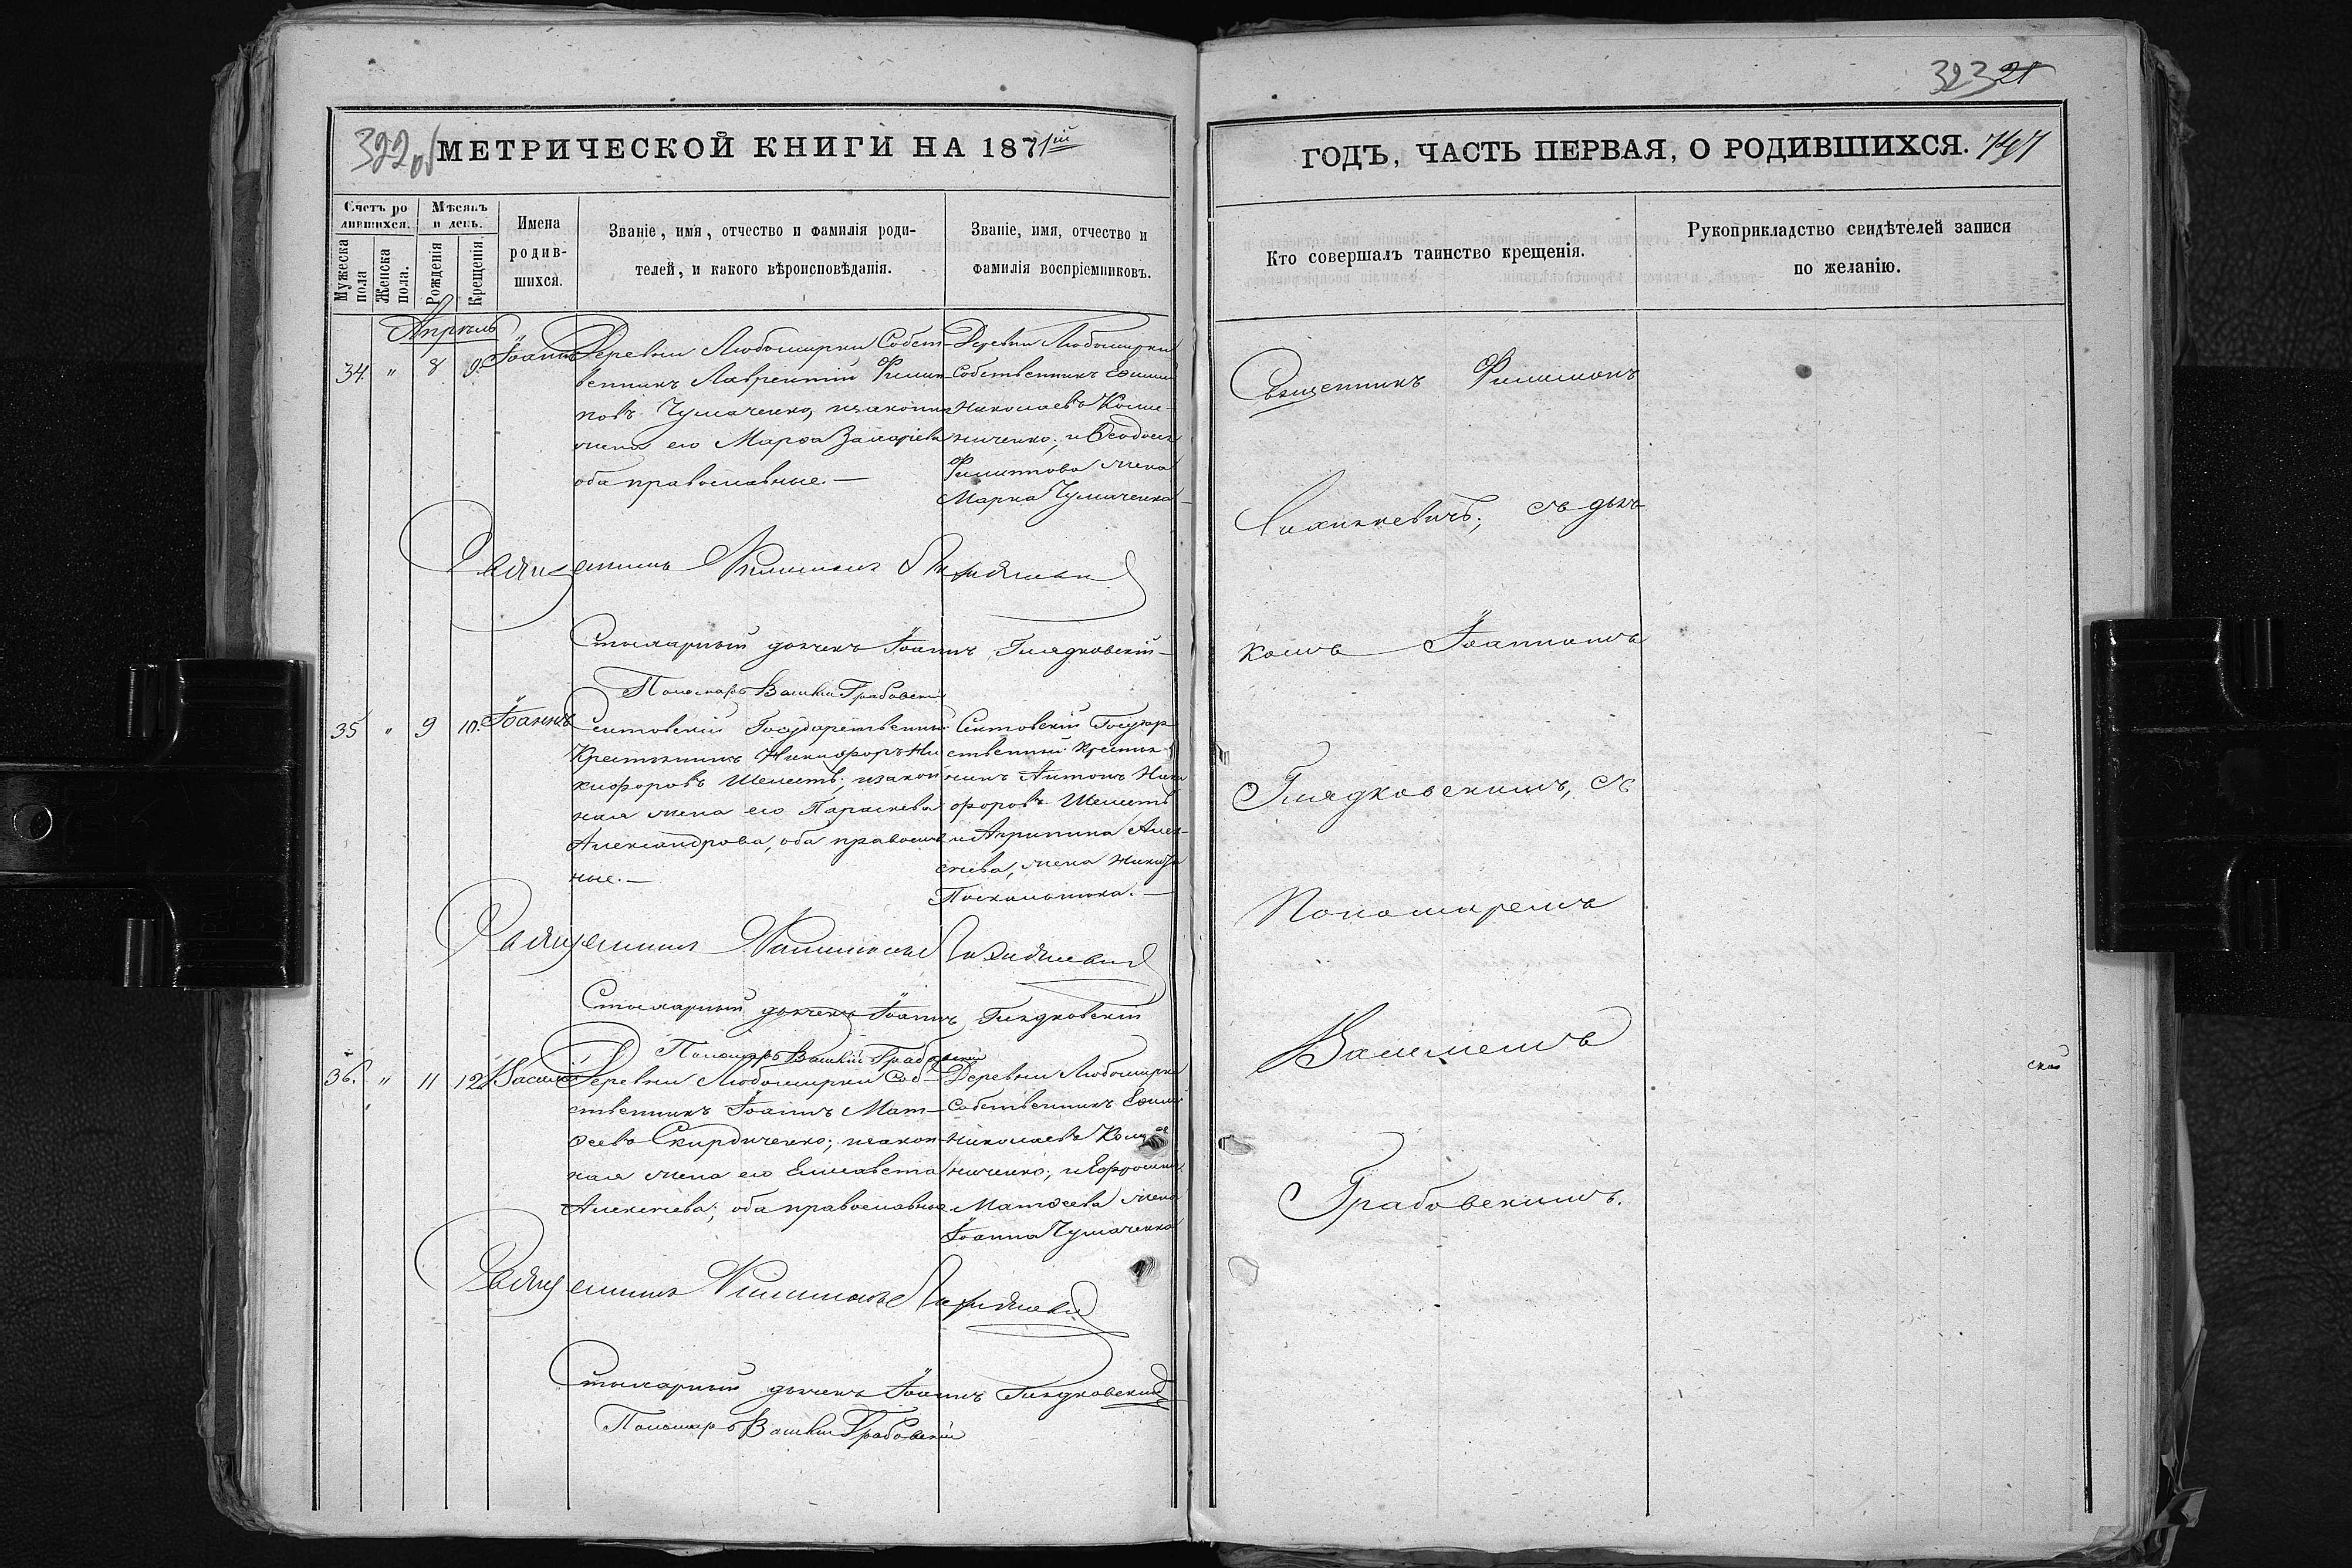 322 об
МЕТРИЧЕСКОЙ КНИГИ НА 1871й
Счетъ ро
дившихся.
Мужеска
пола
Женска
пола.
Мѣсяцъ
и день.
Рожденія
Крещенія.
Имена
родив-
шихся.
Званіе, имя, отчество и фамилія роди-
телей, и какого вѣроисповѣданія.
Званіе, имя, отчество и
фамилія воспріемниковъ.
Апрѣль
34. " 8 9. Іоаннъ
Деревни Любомирки Собст-
венникъ Лаврентій Филип-
повъ Чумаченко, и законная
жена его Марѳа Захаріева
оба православные. —
Деревни Любомирки
Собственникъ Еѳимій
Николаевъ Коше-
ниченко; и Ѳеодосія
Филиппова жена
Марка Чумаченка
Священникъ Филимонъ Лихинкевичъ
Столарный дьячекъ Іоаннъ Глядковскій
Пономарь Василій Грабовскій
35 " 9 10. Іоаннъ
Сентовскій Государственный
Крестьянинъ Никифоръ Ни-
кифоровъ Шелестъ; и закон-
ная жена его Параскева
Александрова, оба православ-
ные. —
Сентовскій Государ-
ственный крестья-
нинъ Антонъ Ники-
форовъ Шелестъ
и Агрипина Алек-
сіева, жена Никифора
Священникъ Филимонъ Лихинкевичъ
Столарный дьячекъ Іоаннъ Глядковскій
Пономарь Василій Грабовскій
36. " 11 12 Василій
Деревни Любомирки Соб-
ственникъ Іоаннъ Мат-
ѳеевъ Скирдиченко; и закон-
ная жена его Елисавета
Алексіева; оба православные
Деревни Любомирки
Собственникъ Еѳимій
Николаевъ Коше-
ниченко; и Ефросинія
Матѳеева жена
Іоанна Чумаченка
Священникъ Филимонъ Лихинкевичъ
Столарный дьячекъ Іоаннъ Глядковскій
Пономарь Василій Грабовскій
323 21
ГОДЪ, ЧАСТЬ ПЕРВАЯ, О РОДИВШИХСЯ.
Кто совершалъ таинство крещенія.
Рукоприкладство свидѣтелей записи
по желанію.
Священникъ Филимонъ
Лихинкевичъ; съ дьяч-
комъ Іоанномъ
Глядковскимъ, съ
Пономаремъ
Василіемъ
Грабовскимъ.